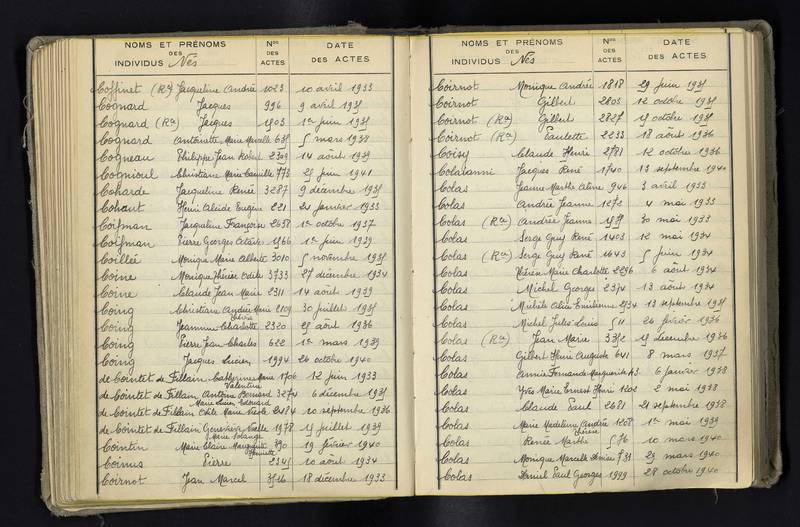 NOMS ET PRÉNOMS
DES
INDIVIDUS Nés
Nos
DES
ACTES
DATE
DES ACTES
Coffinet (Rn) Jacqueline Andrée 1023 10 avril 1933
Cognard Jacques 996 9 avril 1935
Cognard (Rn) Jacques 1503 1er juin 1935
Cognard Antoinette Marie 635 5 mars 1938
Cogneau Philippe Jean Robert 2309 14 août 1939
Cognioul Christiane Marie Camille 773 25 juin 1941
Coharde Jacqueline Renée 3287 9 décembre 1935
Cohaut Henri Alcide Eugène 221 24 janvier 1933
Coifman Jacqueline Françoise 2658 1er octobre 1937
Coifman Pierre Georges 1566 1er juin 1939
Coillée Monique Marie Alberte 3010 5 novembre 1935
Coine Monique Thérèse Odile 3733 27 décembre 1934
Coine Claude Jean Marie 2311 14 août 1939
Coing Christiane Andrée Marie 2109 30 juillet 1935
Coing Jeannine Charlotte 2320 25 août 1936
Coing Pierre Jean Charles 622 1er mars 1939
Coing Jacques Lucien 1994 26 octobre 1940
de Cointet de Fillain Catherine Marie 1706 12 juin 1933
Valentine
de Cointet de Fillain Antoine Bernard 3274 6 décembre 1935
Marie Lucien Edouard
de Cointet de Fillain Odile Marie 2484 10 septembre 1936
de Cointet de Fillain Geneviève 1978 15 juillet 1939
Marie Solange
Cointin Marie Claire Marguerite 390 19 février 1940
Henriette
Coinus Pierre 2345 10 août 1934
Coirnot Jean Marcel 3516 18 décembre 1933
NOMS ET PRÉNOMS
DES
INDIVIDUS Nés
Nos
DES
ACTES
DATE
DES ACTES
Coirnot Monique Andrée 1818 29 juin 1935
Coirnot Gilbert 2803 12 octobre 1935
Coirnot (Rn) Gilbert 2827 15 octobre 1935
Coirnot (Rn) Paulette 2233 18 août 1936
Coisy Claude Henri 2781 12 octobre 1936
Colaianni Jacques René 1740 13 septembre 1940
Colas Jeanne Marthe Aline 946 3 avril 1933
Colas Andrée Jeanne 1272 4 mai 1933
Colas (Rn) Andrée Jeanne 30 mai 1933
Colas Serge Guy René 1403 12 mai 1934
Colas (Rn) Serge Guy René 1643 5 juin 1934
Colas Marie Charlotte 2296 6 août 1934
Colas Michel Georges 2374 13 août 1934
Colas Michèle Alice Emilienne 2534 13 septembre 1935
Colas Michel Jules Louis 511 26 février 1936
Colas (Rn) Jean Marie 3352 15 décembre 1936
Colas Gilbert Henri Auguste 641 8 mars 1937
Colas Annie Fernande Marguerite 43 6 janvier 1938
Colas Yves Marie Ernest Henri 1202 2 mai 1938
Colas Claude Paul 2681 21 septembre 1938
Colas Marie Madeleine Andrée 1208 1er mai 1939
Thérèse
Colas Renée Marthe 576 10 mars 1940
Colas Monique Marcelle 731 29 mars 1940
Colas Daniel Paul Georges 1999 28 octobre 1940